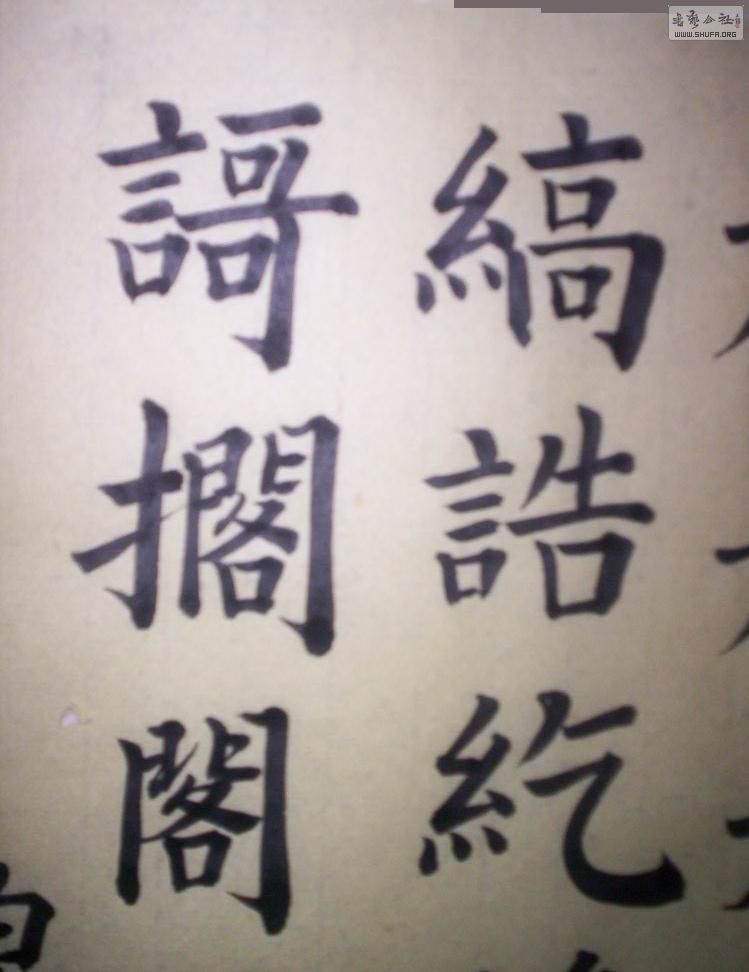 縞誥紇
謌擱閣
书艺公社
WWW.SHUFA.ORG